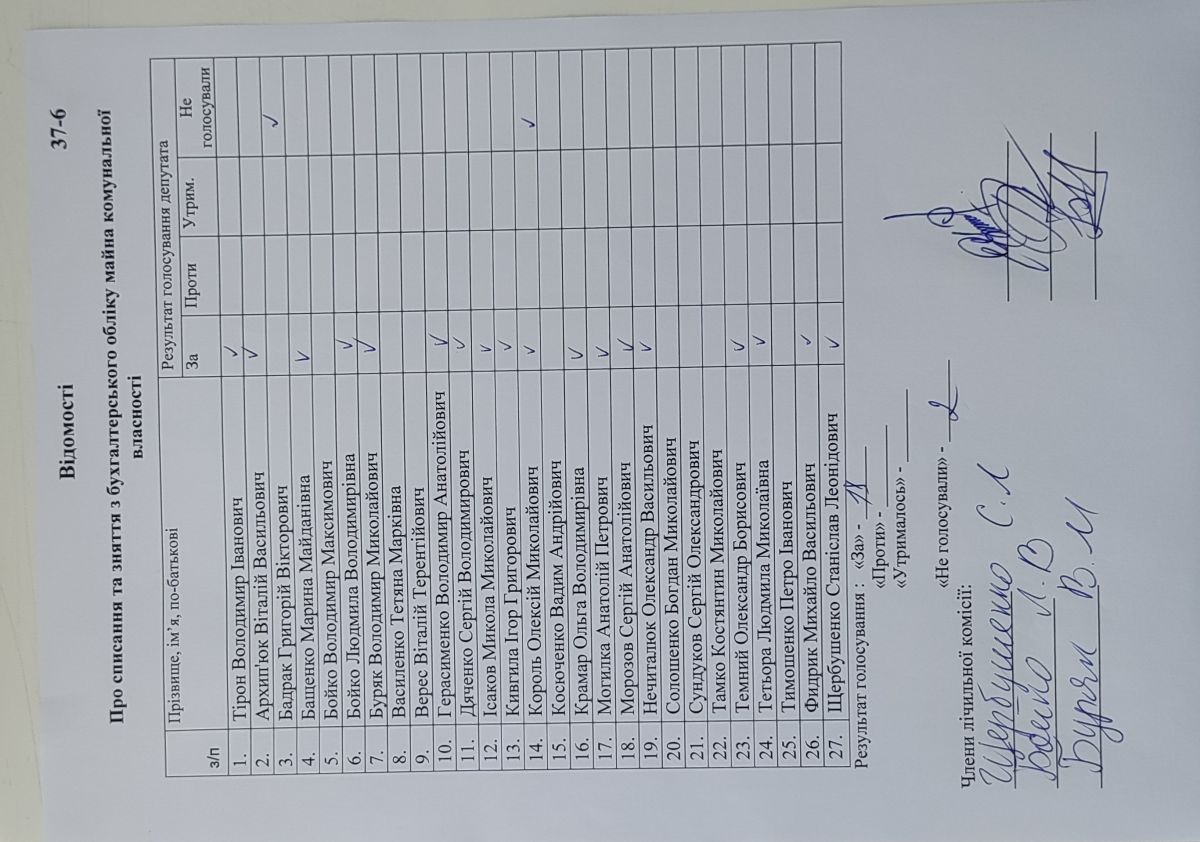 Відомості 37-6
Про списання та зняття з бухгалтерського обліку майна комунальної
власності
з/п Прізвище, ім’я, по-батькові Результат голосування депутата
За Проти Утрим. Не голосували
1. Тірон Володимир Іванович ✓
2. Архип'юк Віталій Васильович ✓
3. Бадрак Григорій Вікторович ✓
4. Бащенко Марина Майданівна ✓
5. Бойко Володимир Максимович
6. Бойко Людмила Володимирівна ✓
7. Буряк Володимир Миколайович ✓
8. Василенко Тетяна Марківна
9. Верес Віталій Терентійович
10. Герасименко Володимир Анатолійович ✓
11. Дяченко Сергій Володимирович ✓
12. Ісаков Микола Миколайович ✓
13. Кивгила Ігор Григорович ✓
14. Король Олексій Миколайович ✓ ✓
15. Косюченко Вадим Андрійович
16. Крамар Ольга Володимирівна ✓
17. Могилка Анатолій Петрович ✓
18. Морозов Сергій Анатолійович ✓
19. Нечиталюк Олександр Васильович ✓
20. Солошенко Богдан Миколайович
21. Сундуков Сергій Олександрович
22. Тамко Костянтин Миколайович
23. Темний Олександр Борисович ✓
24. Тетьора Людмила Миколаївна ✓
25. Тимошенко Петро Іванович
26. Фидрик Михайло Васильович ✓
27. Щербушенко Станіслав Леонідович ✓
Результат голосування : «За» - 18
«Проти» -
«Утрималось» -
«Не голосували» - 2
Члени лічильної комісії:
Щербушенко С.Л
Бойко Л.В
Буряк В.М